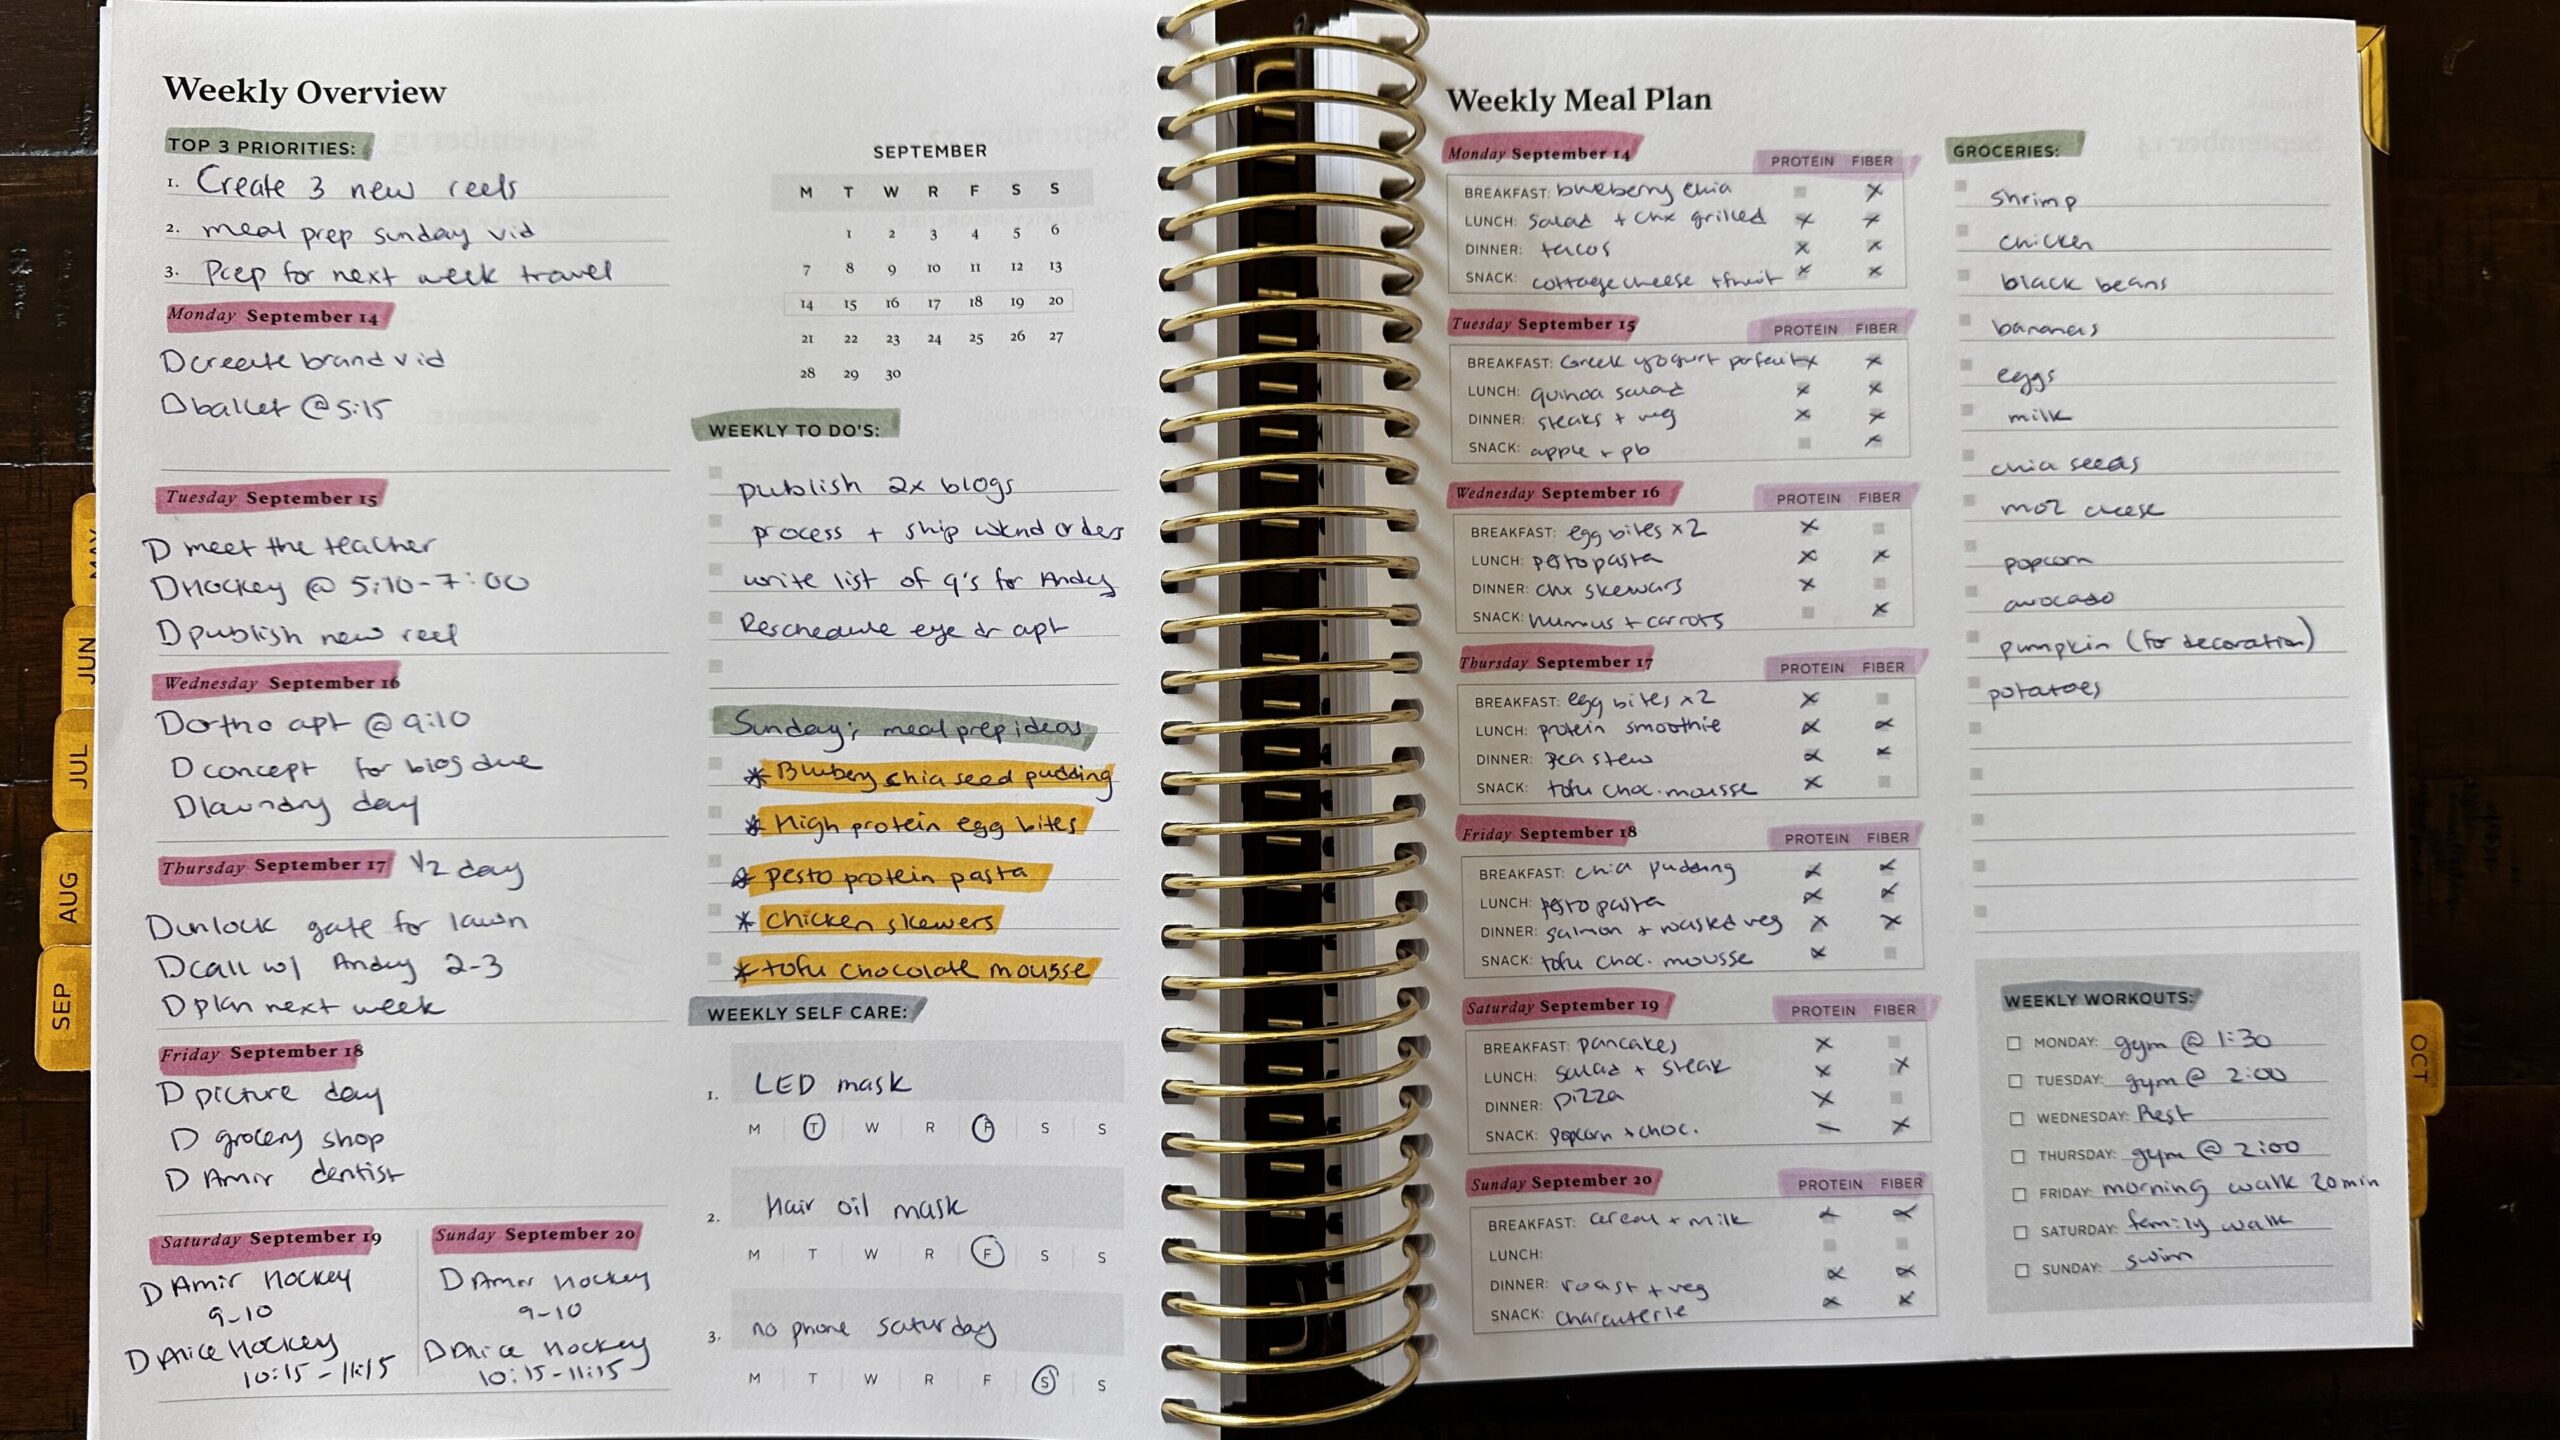 Weekly Overview
TOP 3 PRIORITIES:
1. Create 3 new reels
2. meal prep sunday vid
3. Prep for next week travel
Monday September 14
create brand vid
ballet @ 5:15
Tuesday September 15
meet the teacher
Hockey @ 5:10-7:00
publish new reel
Wednesday September 16
ortho apt @ 9:10
concept for blog due
laundry day
Thursday September 17 1/2 day
unlock gate for lawn
call w/ Andy 2-3
plan next week
Friday September 18
picture day
grocery shop
Amir dentist
Saturday September 19
Amir Hockey
9-10
Alice Hockey
10:15-11:15
Sunday September 20
Amir Hockey
9-10
Alice Hockey
10:15-11:15
SEPTEMBER
M T W R F S S
1 2 3 4 5 6
7 8 9 10 11 12 13
14 15 16 17 18 19 20
21 22 23 24 25 26 27
28 29 30
WEEKLY TO DO'S:
publish 2x blogs
process + ship wknd orders
write list of q's for Andy
Reschedule eye dr apt
Sunday; meal prep ideas
* Blubery chia seed pudding
* High protein egg bites
* pesto protein pasta
* chicken skewers
* tofu chocolate mousse
WEEKLY SELF CARE:
1. LED mask
M T W R F S S
2. Hair oil mask
M T W R F S S
3. no phone saturday
M T W R F S S
MAY
JUN
JUL
AUG
SEP
Weekly Meal Plan
Monday September 14 PROTEIN FIBER
BREAKFAST: blueberry chia x
LUNCH: salad + chx grilled x x
DINNER: tacos x x
SNACK: cottage cheese + fruit x x
Tuesday September 15 PROTEIN FIBER
BREAKFAST: Greek yogurt parfait x x
LUNCH: quinoa salad x x
DINNER: steaks + veg x x
SNACK: apple + pb x
Wednesday September 16 PROTEIN FIBER
BREAKFAST: egg bites x2 x
LUNCH: pesto pasta x x
DINNER: chx skewars x
SNACK: hummus + carrots x
Thursday September 17 PROTEIN FIBER
BREAKFAST: egg bites x2 x
LUNCH: protein smoothie x x
DINNER: pea stew x x
SNACK: tofu choc. mousse x
Friday September 18 PROTEIN FIBER
BREAKFAST: chia pudding x x
LUNCH: pesto pasta x x
DINNER: salmon + roasted veg x x
SNACK: tofu choc. mousse x
Saturday September 19 PROTEIN FIBER
BREAKFAST: pancakes x
LUNCH: salad + steak x x
DINNER: pizza x
SNACK: popcorn + choc. - x
Sunday September 20 PROTEIN FIBER
BREAKFAST: cereal + milk x x
LUNCH:
DINNER: roast + veg x x
SNACK: charcuterie x x
GROCERIES:
shrimp
chicken
black beans
bananas
eggs
milk
chia seeds
moz cheese
popcorn
avocado
pumpkin (for decoration)
potatoes
WEEKLY WORKOUTS:
MONDAY: gym @ 1:30
TUESDAY: gym @ 2:00
WEDNESDAY: Rest
THURSDAY: gym @ 2:00
FRIDAY: morning walk 20 min
SATURDAY: family walk
SUNDAY: swim
OCT